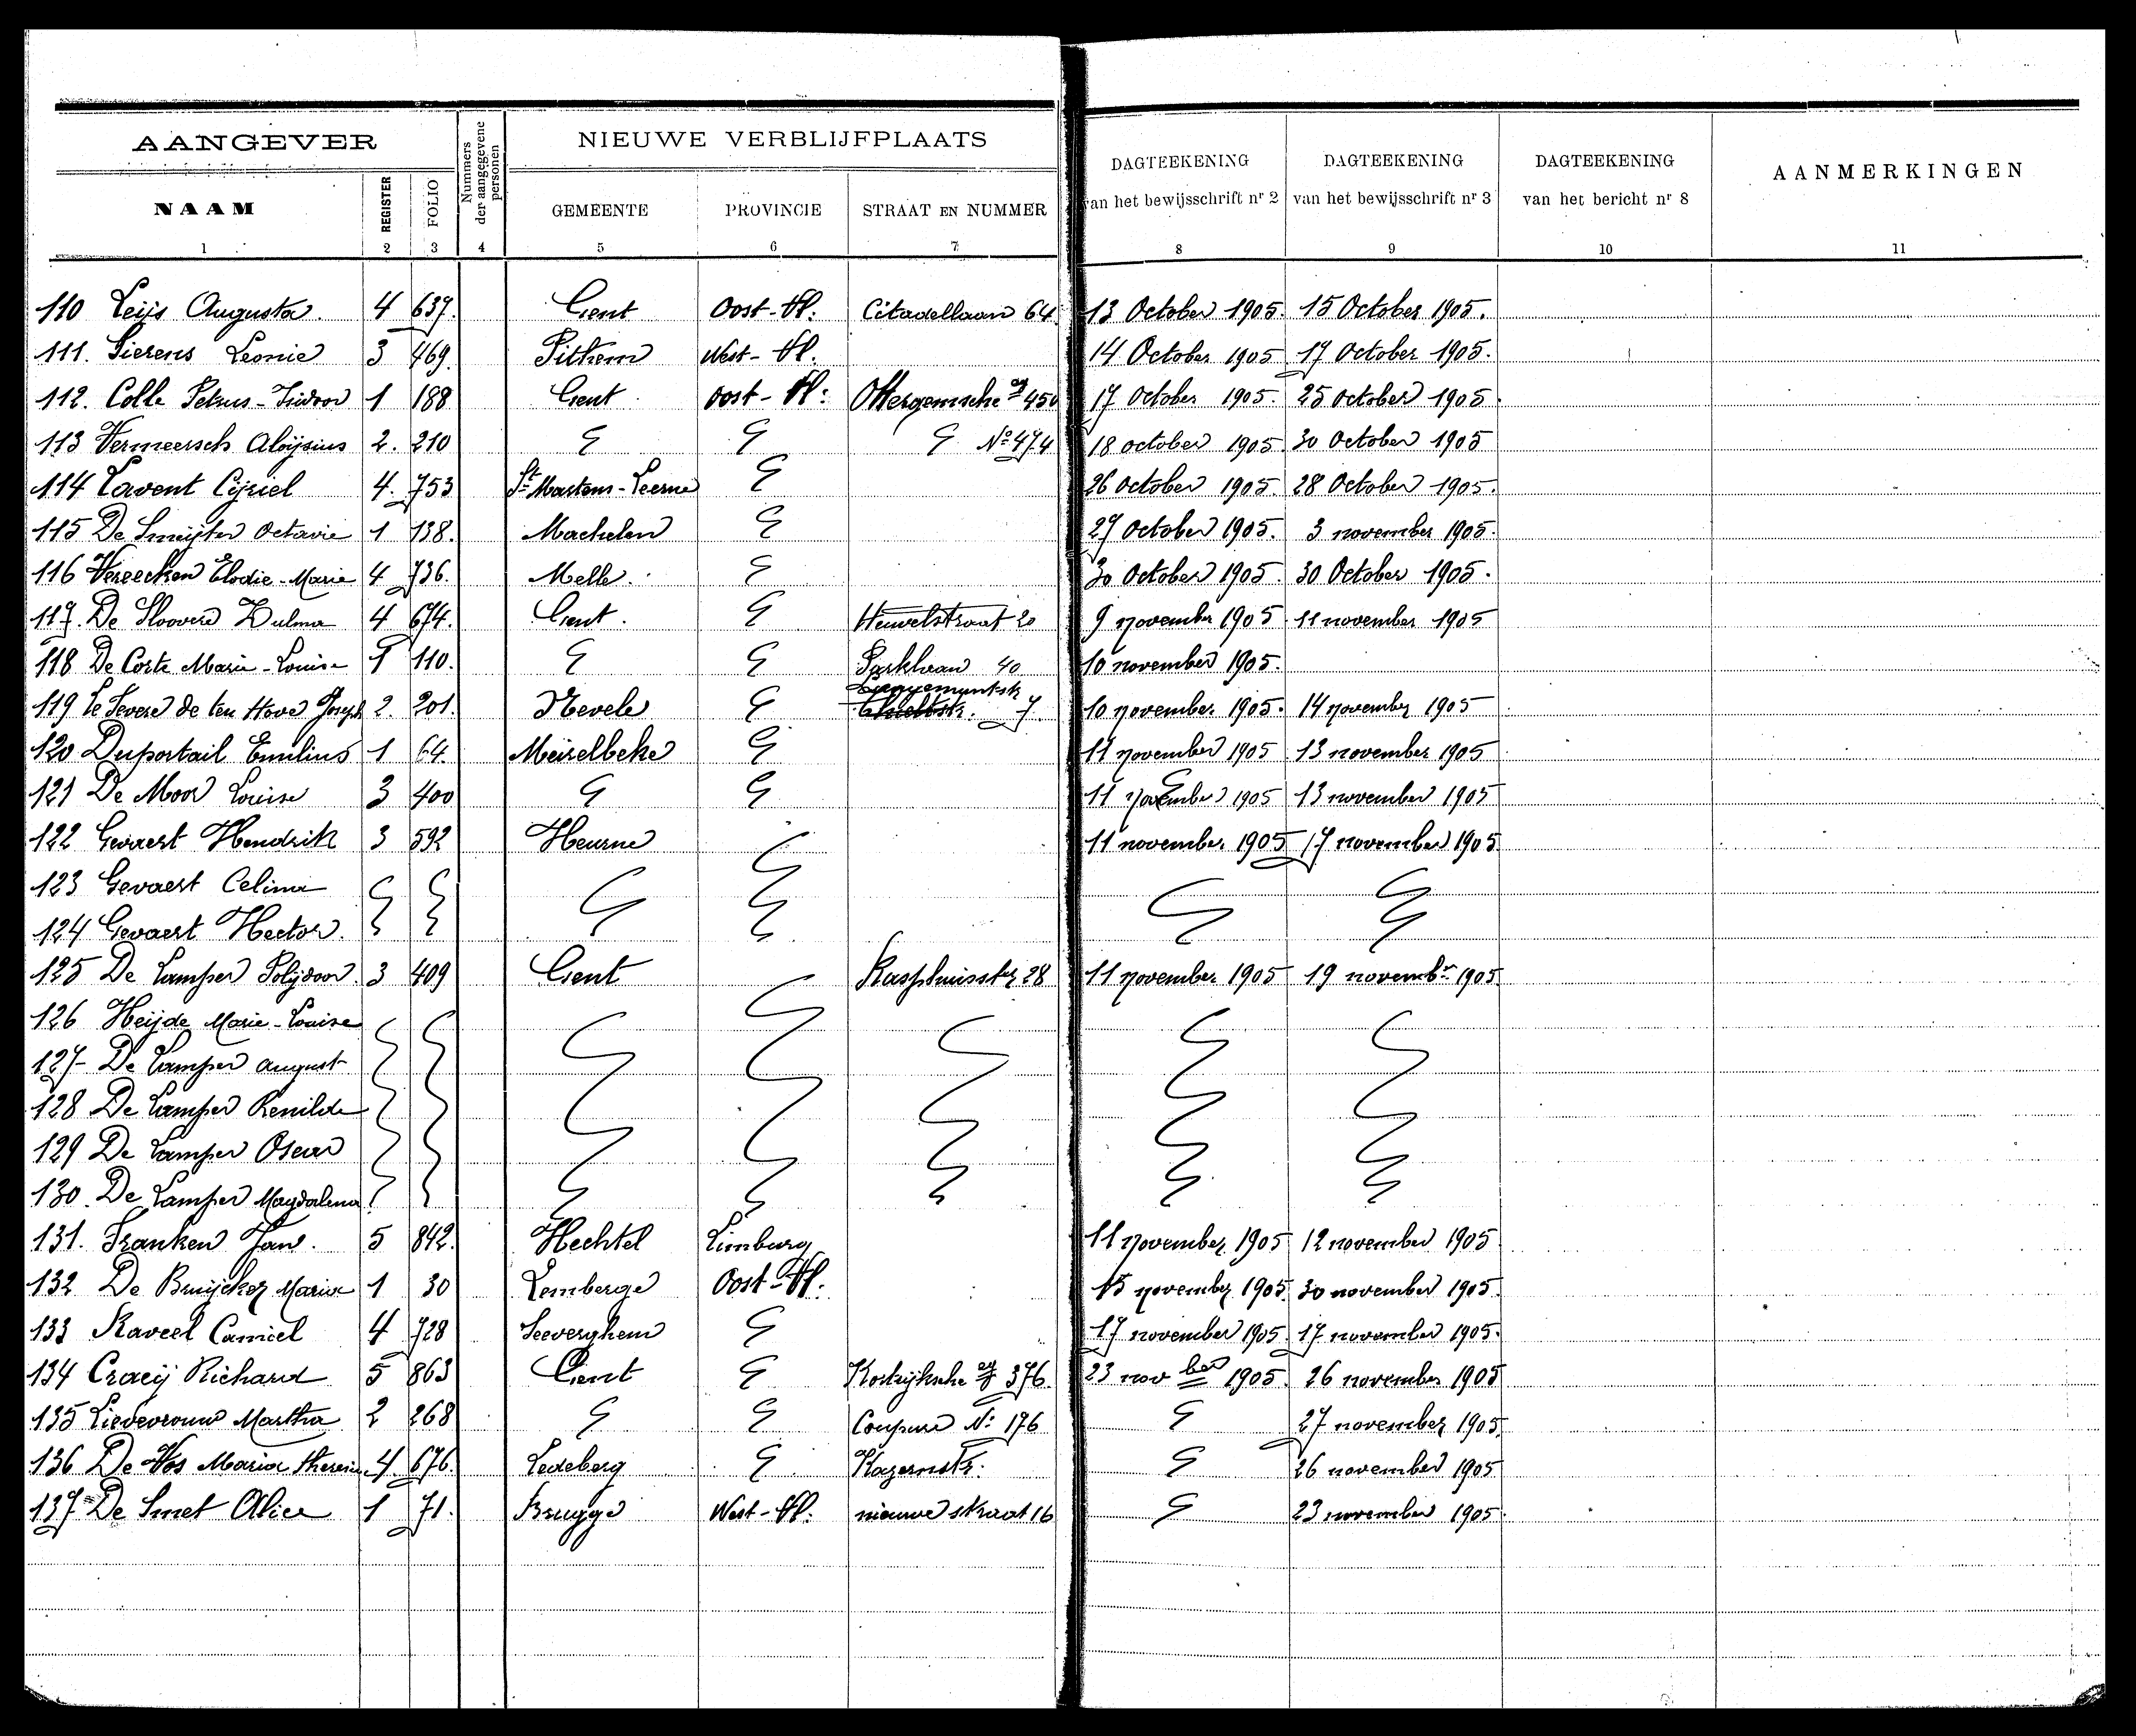 AANGEVER
NIEUWE VERBLIJFPLAATS
NAAM REGISTER FOLIO Nummers der aangegevene personen GEMEENTE PROVINCIE STRAAT EN NUMMER DAGTEEKENING van het bewijsschrift nr 2 DAGTEEKENING van het bewijsschrift nr 3 DAGTEEKENING van het bericht nr 8 AANMERKINGEN
1 2 3 4 5 6 7 8 9 10 11
110 Leijs Augusta. 4 637. Gent Oost-Vl. Citadellaan 64. 13 October 1905. 15 October 1905.
111. Sierens Leonie 3 469. Pitthem West-Vl. 14 October 1905 17 October 1905.
112. Colle Petrus-Isidoor 1 188 Gent Oost-Vl: Ottergemsche 450 17 October 1905. 25 October 1905.
113 Vermeersch Aloijsius 2. 210 Nº 474 18 october 1905. 30 October 1905
114 Lavent Cijriel 4. 753 St Martens-Leerne 26 October 1905. 28 October 1905.
115 De Smeijter Octavie 1 138. Machelen 27 October 1905. 3 november 1905.
116 Vereecken Elodie-Marie 4 736. Melle. 30 October 1905. 30 October 1905.
117. De Sloovere Zulma 4 674. Gent. Heuvelstraat 20 9 november 1905. 11 november 1905
118 De Corte Marie-Louise 1 110. Parklaan 40 10 november 1905.
119 te Severe de ten Hove Joseph 2. 201. Nevele 7. 10 november 1905. 14 november 1905
120 Duportail Emilius 1 64. Meirelbeke 11 november 1905 13 november 1905
121 De Moor Louise 3 400 11 november 1905 13 november 1905
122 Gevaert Hendrik 3 592 Heurne 11 november 1905 17 november 1905
123 Gevaert Celina
124 Gevaert Hector.
125 De Lamper Polijdoor. 3 409 Gent Rasphuisstr 28 11 november 1905 19 novembr 1905
126 Heijde Marie-Louise
127 De Lamper August
128 De Lamper Renilde
129 De Lamper Oscar
130. De Lamper Magdalena
131. Franken Jan. 5 842. Hechtel Limburg 11 november 1905 12 november 1905
132 De Bruijcker Maria 1 30 Lemberge Oost-Vl: 15 november 1905. 30 november 1905.
133 Raveel Camiel 4 728 Seeverghem 17 november 1905. 17 november 1905.
134 Craeij Richard 5 863 Gent Kortrijksche 376. 23 novber 1905. 26 november 1905
135 Lievevrouw Martha 2 268 Coupure Nº 176 27 november 1905.
136 De Vos Maria Theresia 4. 676. Ledeberg Kazernstr: 26 november 1905
137 De Smet Alice 1 71. Brugge West-Vl: nieuwe straat 16 23 november 1905.